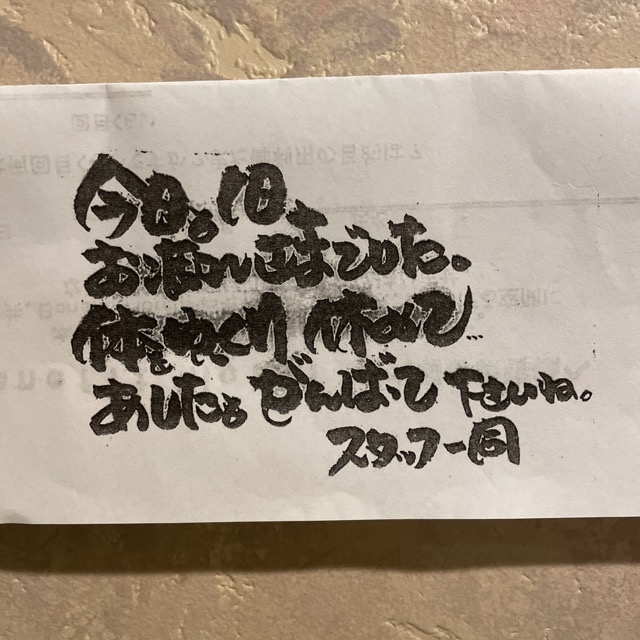 今日も1日、
お疲れさまでした。
体をゆっくり休めて…
あしたもがんばって下さいね。
スタッフ一同